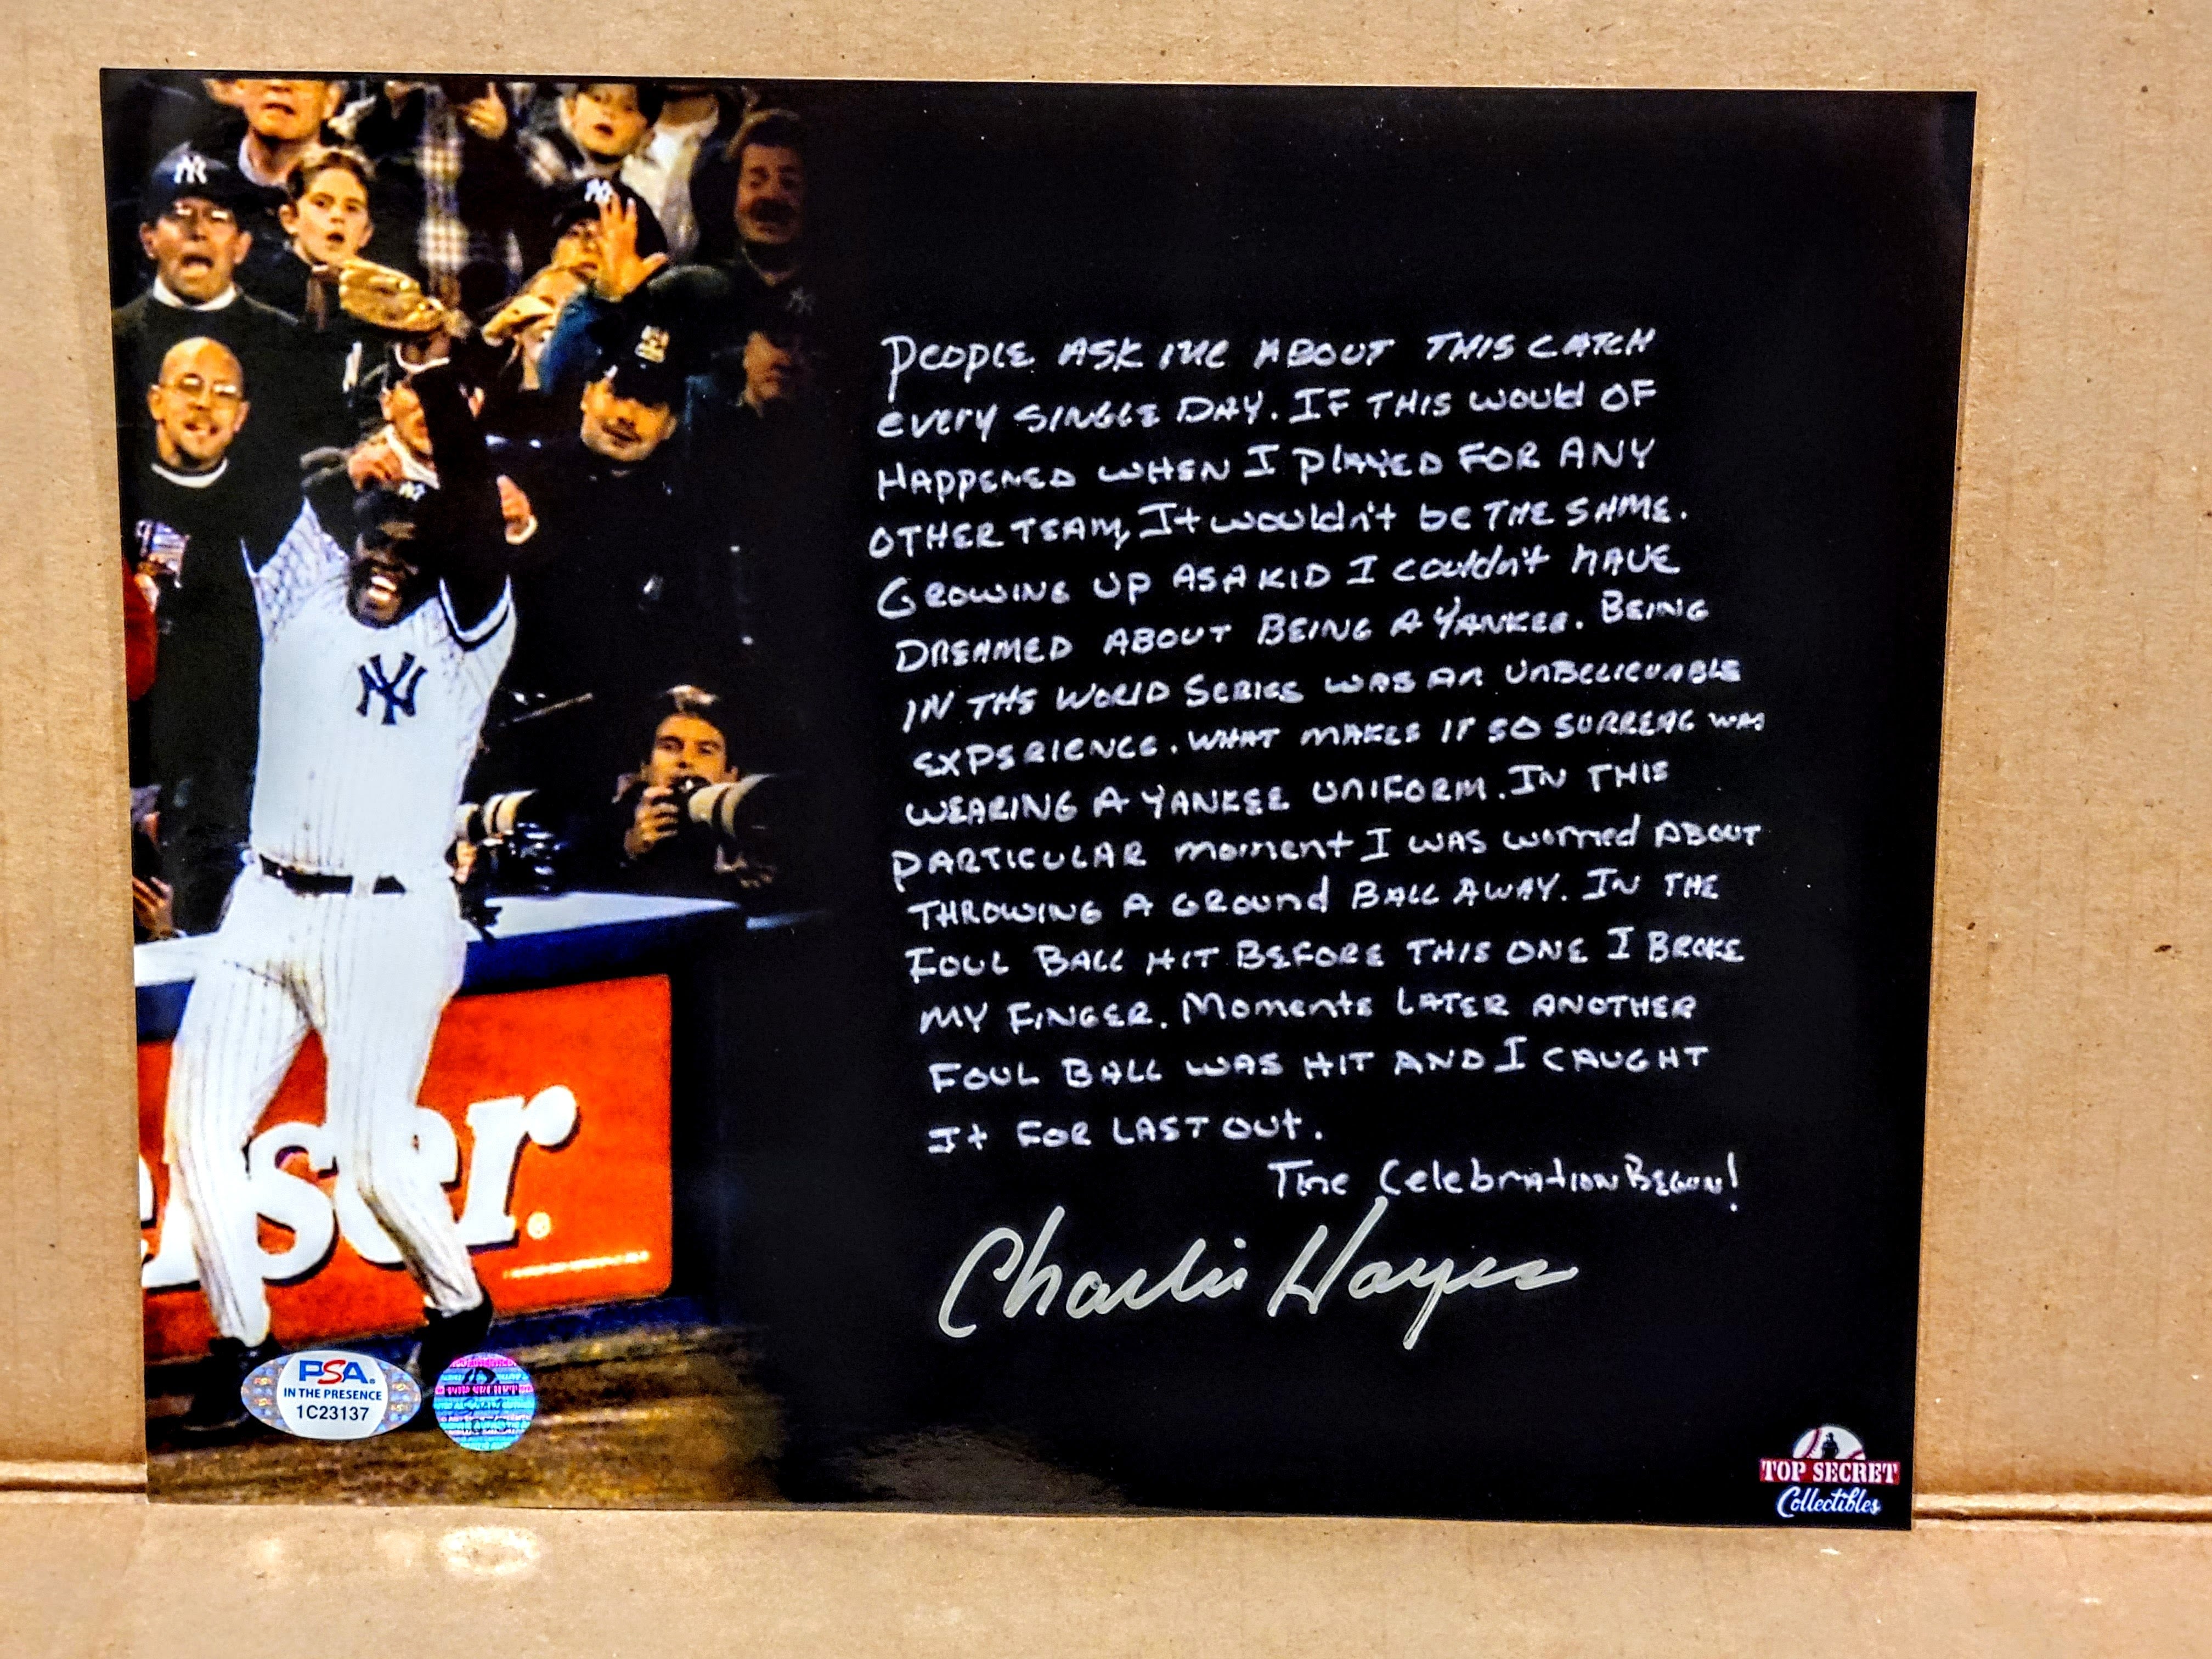 PEOPLE ASK ME ABOUT THIS CATCH
EVERY SINGLE DAY. IF THIS WOULD OF
HAPPENED WHEN I PLAYED FOR ANY
OTHER TEAM, It wouldn't be THE SAME.
GROWING UP AS A KID I couldn't HAVE
DREAMED ABOUT BEING A YANKEE. BEING
IN THE WORLD SERIES WAS AN UNBELIEVABLE
EXPERIENCE. WHAT MAKES IT SO SURREAL WAS
WEARING A YANKEE UNIFORM. IN THIS
PARTICULAR moment I WAS worried ABOUT
THROWING A GROUND BALL AWAY. IN THE
FOUL BALL HIT BEFORE THIS ONE I BROKE
MY FINGER. Moments LATER ANOTHER
FOUL BALL WAS HIT AND I CAUGHT
It FOR LAST OUt.
The CelebrATION BEGUN!
Charlie Hayes
NY
NY
NY
ser.®
PSA.
IN THE PRESENCE
1C23137
TOP SECRET
TOP SECRET
Collectibles